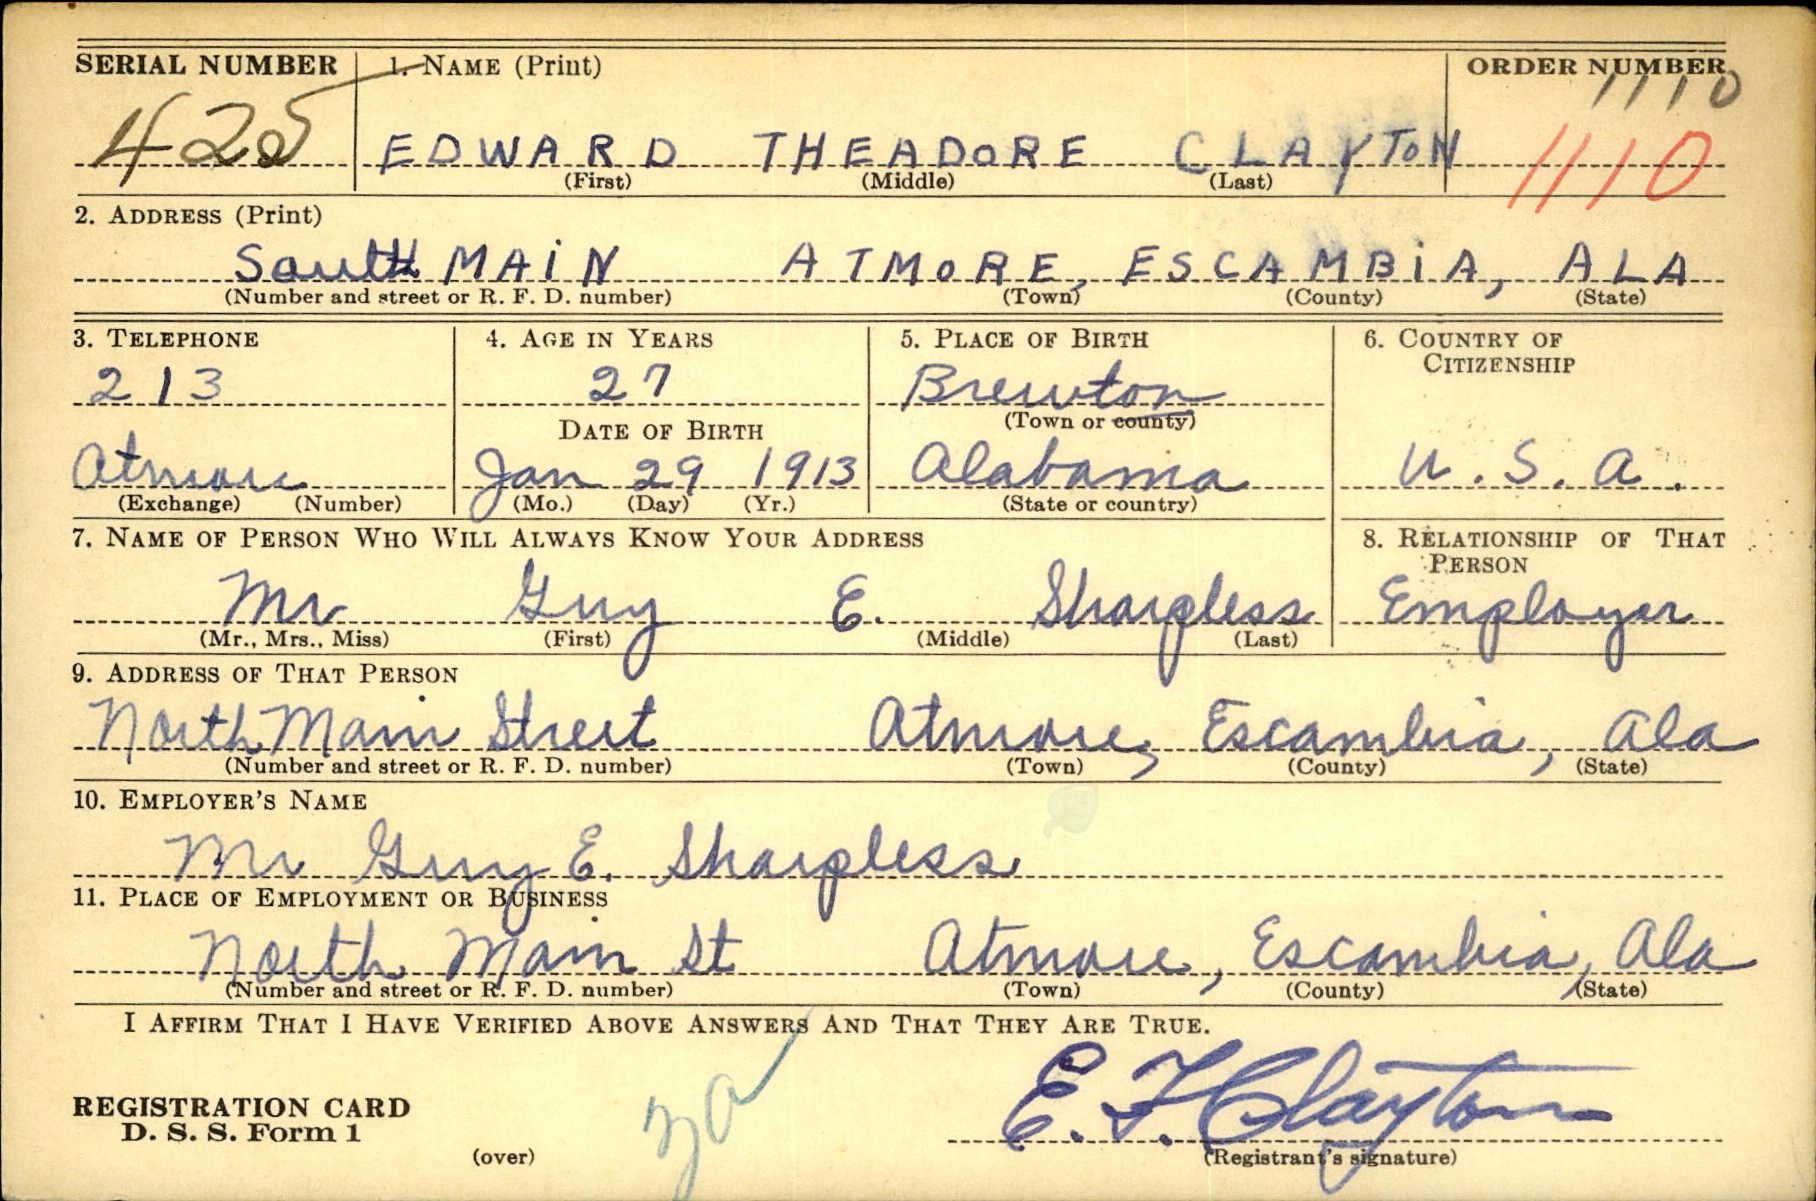 SERIAL NUMBER 1. NAME (Print) ORDER NUMBER
1110
425 EDWARD THEADORE CLAYTON 1110
(First) (Middle) (Last)
2. ADDRESS (Print)
South MAIN ATMORE, ESCAMBIA, ALA
(Number and street or R. F. D. number) (Town) (County) (State)
3. TELEPHONE 4. AGE IN YEARS 5. PLACE OF BIRTH 6. COUNTRY OF
CITIZENSHIP
213 27 Brewton
(Town or county)
DATE OF BIRTH
Atmore Jan 29 1913 Alabama U.S.A.
(Exchange) (Number) (Mo.) (Day) (Yr.) (State or country)
7. NAME OF PERSON WHO WILL ALWAYS KNOW YOUR ADDRESS 8. RELATIONSHIP OF THAT
PERSON
Mr Guy E. Sharpless Employer
(Mr., Mrs., Miss) (First) (Middle) (Last)
9. ADDRESS OF THAT PERSON
North Main Street Atmore, Escambia, Ala
(Number and street or R. F. D. number) (Town) (County) (State)
10. EMPLOYER'S NAME
Mr Guy E. Sharpless
11. PLACE OF EMPLOYMENT OR BUSINESS
North Main St Atmore, Escambia, Ala
(Number and street or R. F. D. number) (Town) (County) (State)
I AFFIRM THAT I HAVE VERIFIED ABOVE ANSWERS AND THAT THEY ARE TRUE.
REGISTRATION CARD E. T. Clayton
D. S. S. Form 1
(over) (Registrant's signature)